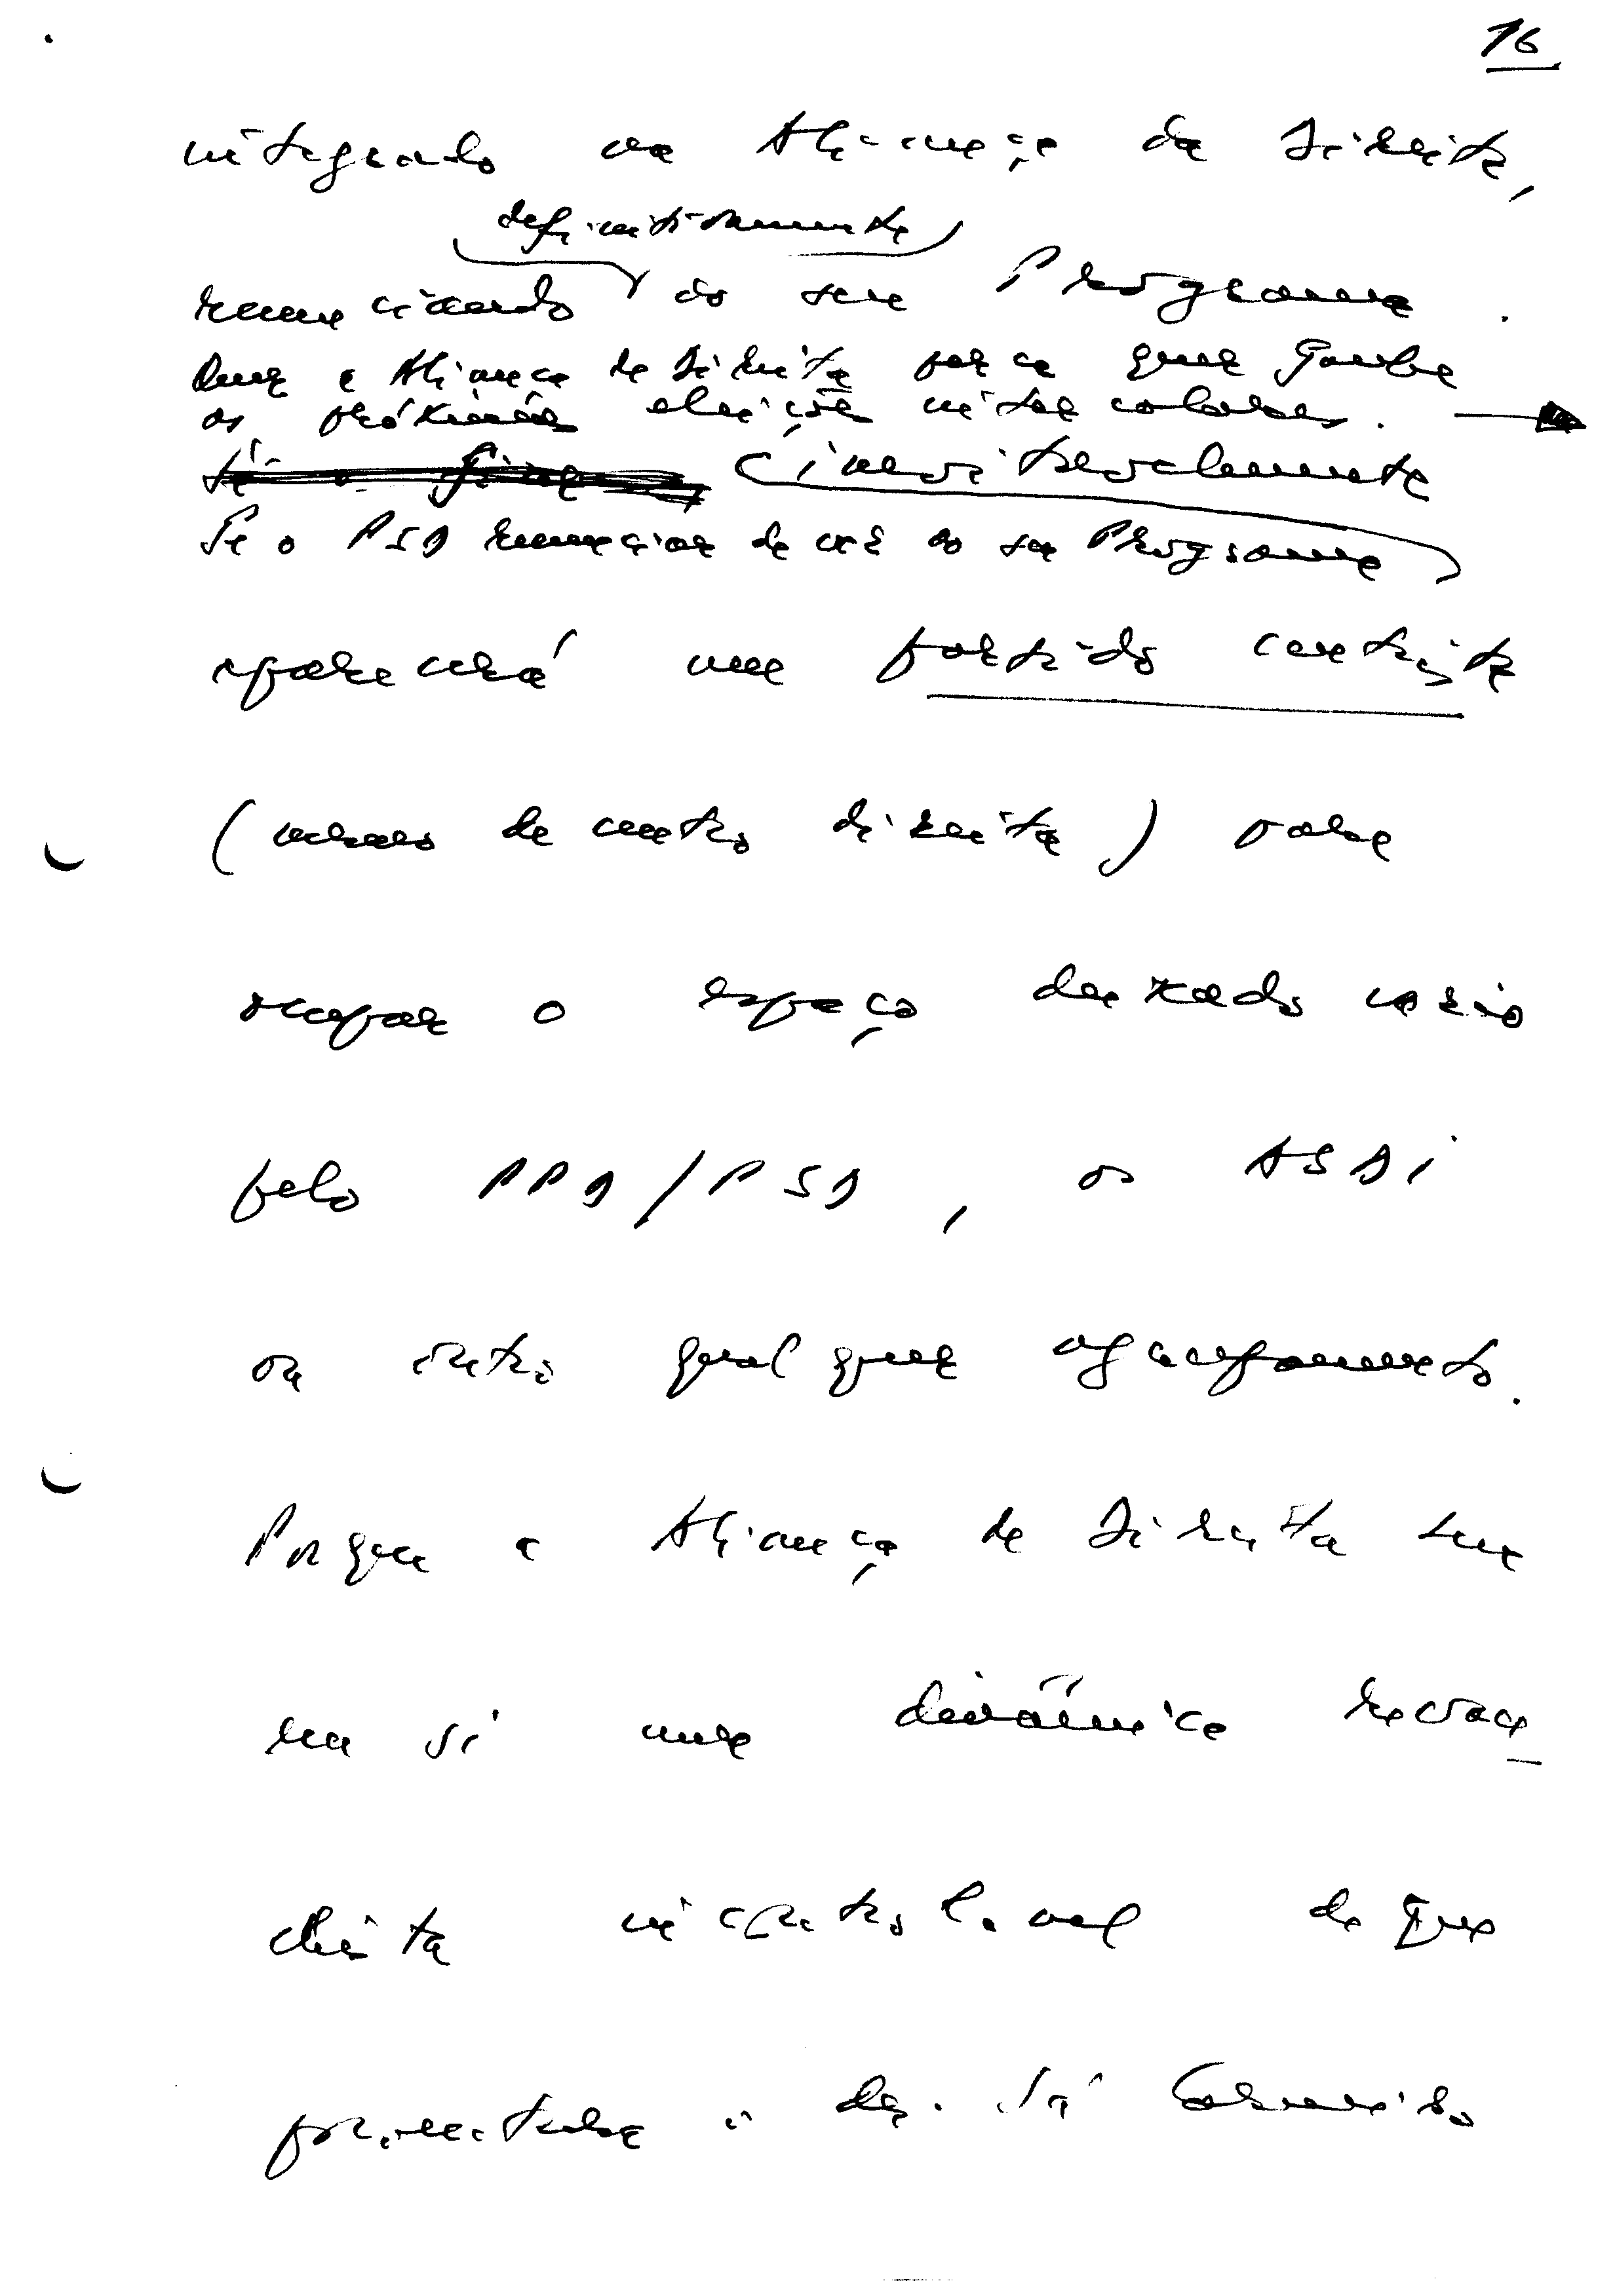 16
integrado na Aliança de Direita,
definitivamente
renunciando ao seu Programa.
Quer a Aliança de Direita perca quer ganhe
as próximas eleições intercalares.
Se o
inevitavelmente
Se o PSD renunciar de vez ao seu Programa
aparecerá um partido centrista
( de centro direita) para
ocupar o espaço deixado vazio
pelo PPD/PSD, a ASDI
ou outro qualquer agrupamento.
Porque a Aliança de Direita tem
em si uma dinâmica revan
chista incontrolável de que
porventura o dr. Sá Carneiro